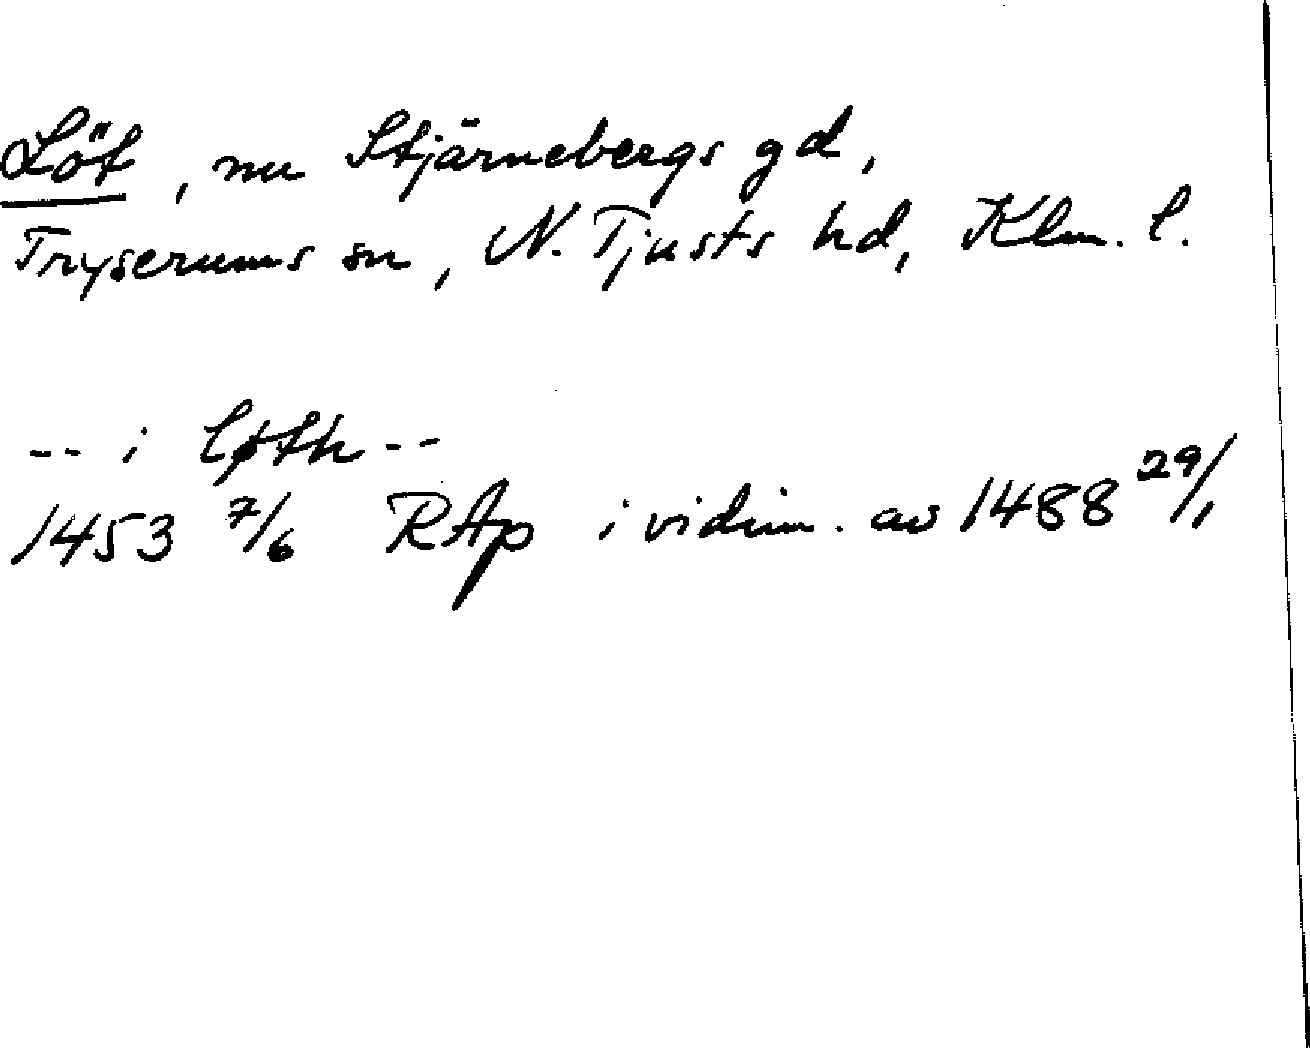 Löt, nu Stjärnebergs gd,
Tryserums sn, N. Tjusts hd, Klm. l.
-- i løth --
1453 7/6 RAp i vidim. av 1488 29/1